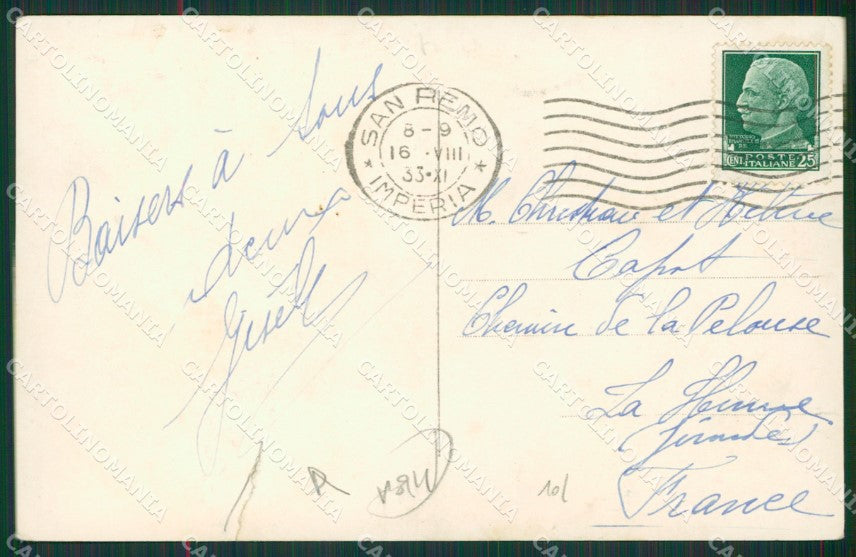 Baisers à tous
deux
Gisèle
SAN REMO
8-9
16 VIII
33·XI
* IMPERIA *
POSTE
CENT ITALIANE 25
M. Christian et Hélène
Capot
Chemin de la Pelouse
La
France
10/
CARTOLINOMANIA